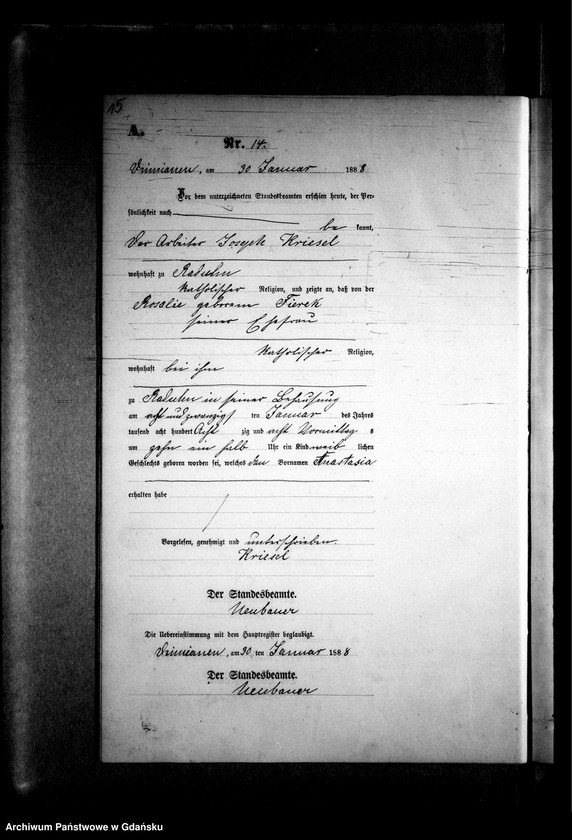 15
A.
Nr. 14.
am 30 Januar 1888
Vor dem unterzeichneten Standesbeamten erschien heute, der Per-
sönlichkeit nach
be kannt,
Der Arbeiter Joseph Kriesel
wohnhaft zu Raduhn
katholischer Religion, und zeigte an, daß von der
Rosalie geborenen Tierek
seiner Ehefrau
katholischer Religion,
wohnhaft bei ihm
zu Raduhn in seiner Behausung
am acht und zwanzig ten Januar des Jahres
tausend acht hundert Acht zig und acht Vormittag s
um zehn ein halb Uhr ein Kind weib lichen
Geschlechts geboren worden sei, welches den Vornamen Anastasia
erhalten habe
Vorgelesen, genehmigt und unterschrieben.
Kriesel
Der Standesbeamte.
Neubauer
Die Uebereinstimmung mit dem Hauptregister beglaubigt.
am 30 ten Januar 1888
Der Standesbeamte.
Neubauer
Archiwum Państwowe w Gdańsku